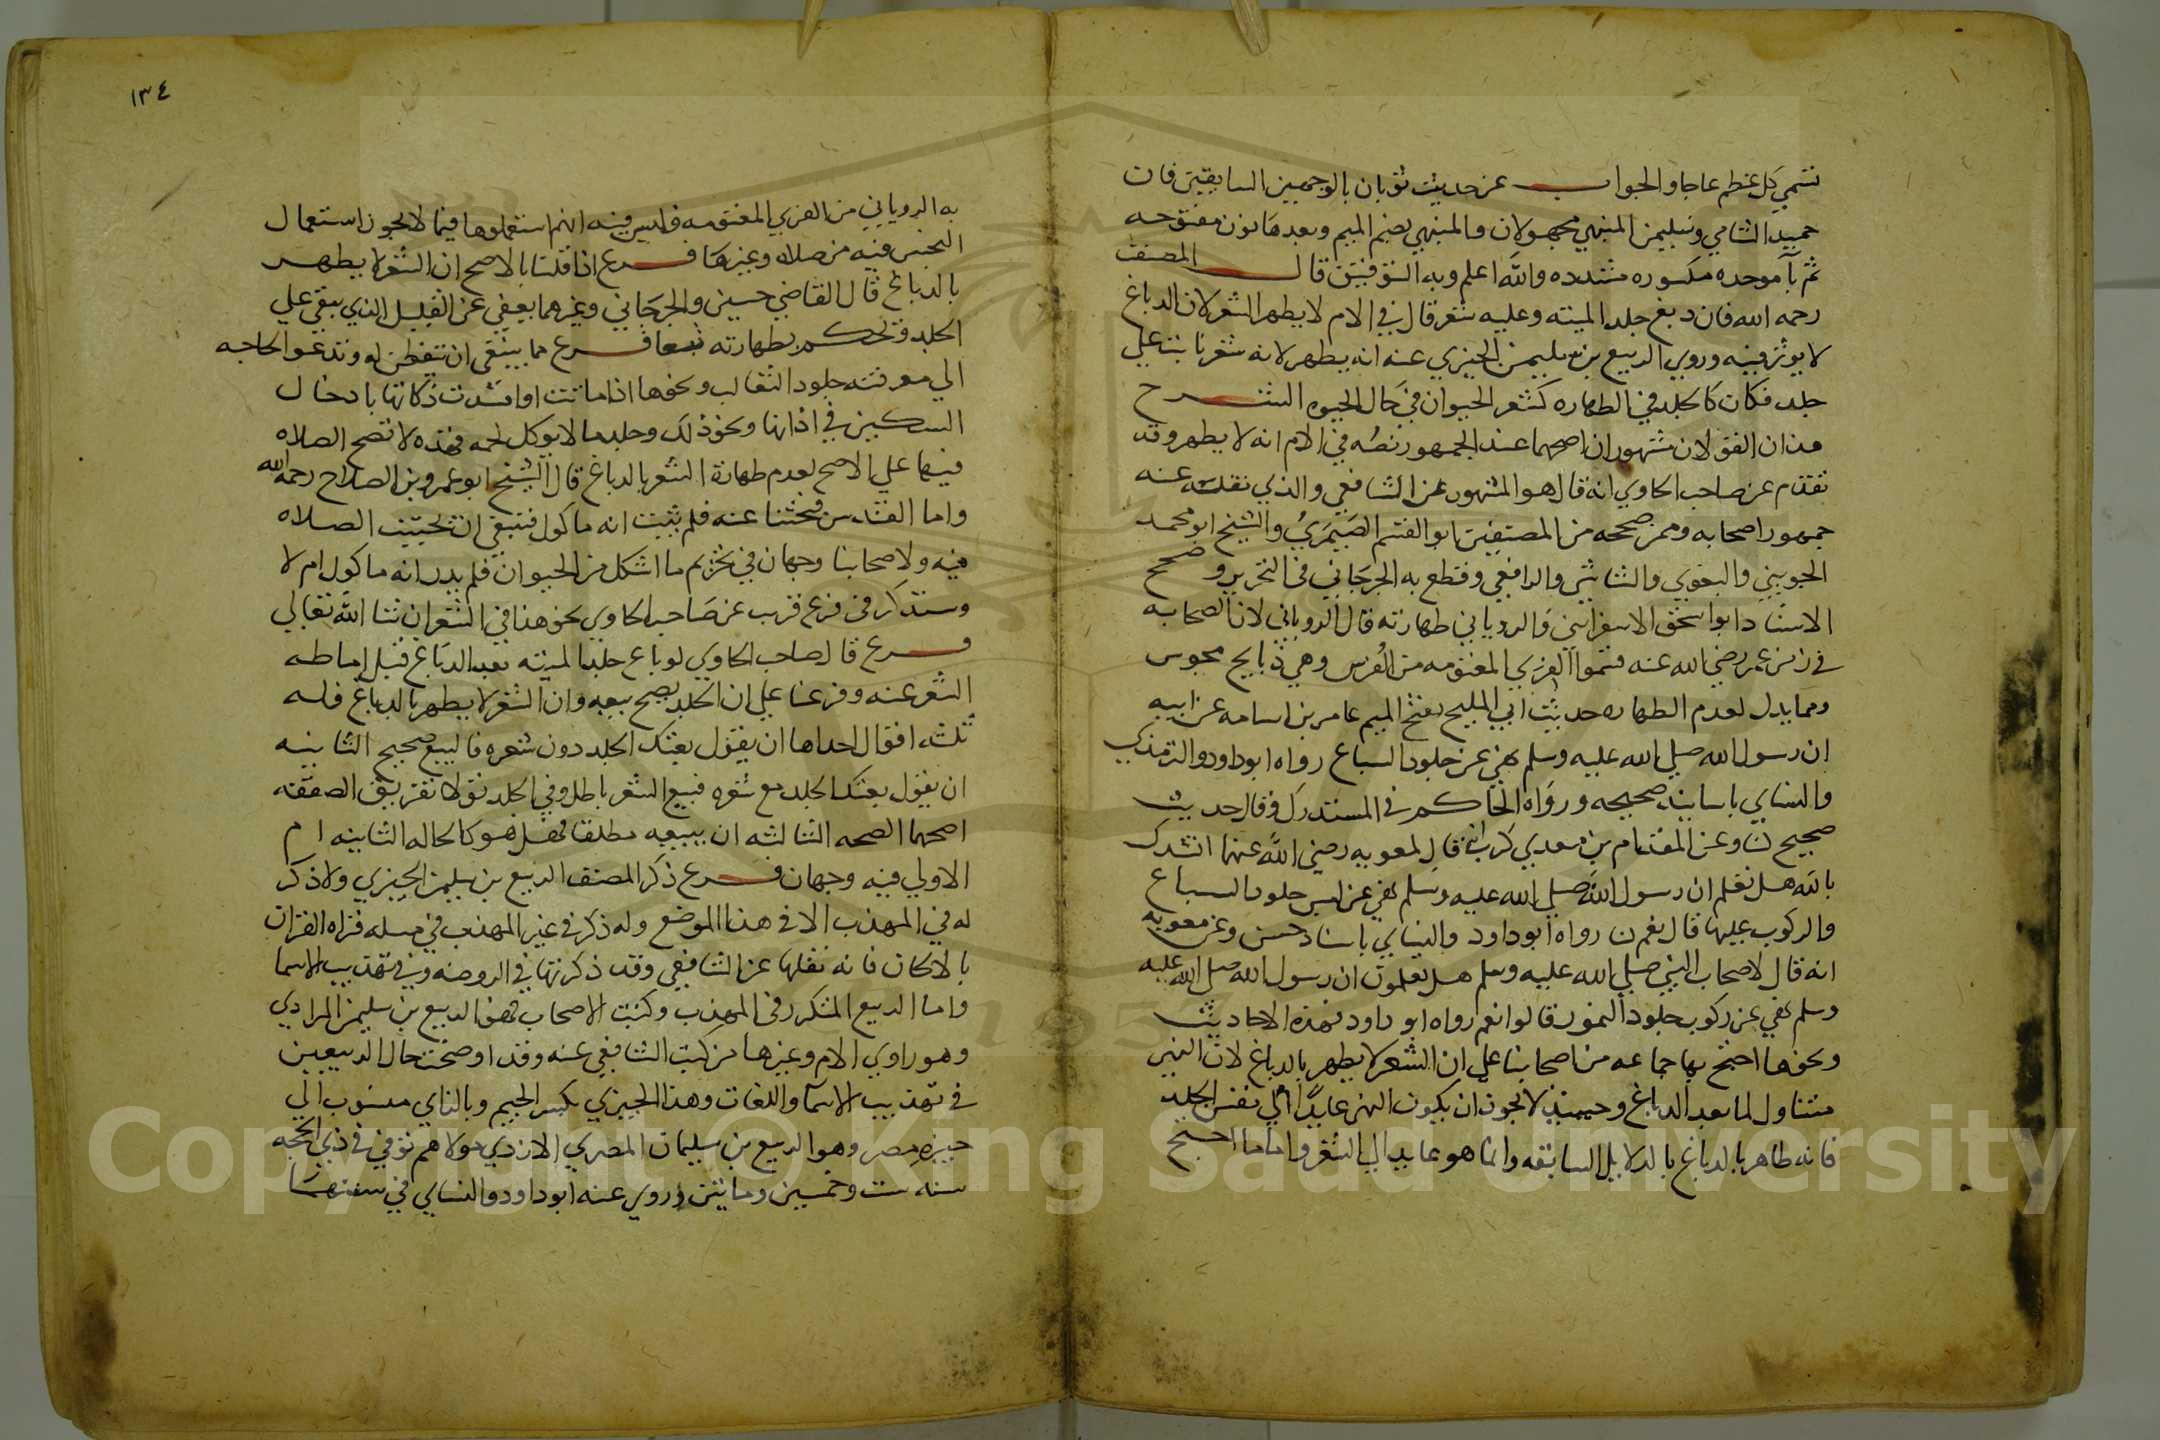 تسمي كل عظم عاجا والجواب عن حديث ثوبان بالوجهين السابقين فان
حميد الشامي وسليمن المنبهي مجهولان والمنبهي بضم الميم وبعدها نون مفتوحه
ثم بآ موحده مكسوره مشدده والله اعلم وبه التوفيق قال المصنف
رحمه الله فان دبغ جلد الميته وعليه شعر قال في الام لا يطهر الشعر لان الدباغ
لا يوثر فيه وروي الربيع بن سليمن الجيزي عنه انه يطهر لانه شعر نابت علي
جلد فكان كالجلد في الطهاره كشعر الحيوان في حال الحيوه الشرح
هذان القولان مشهوران اصحهما عند الجمهور نصه في الام انه لا يطهر وقد
تقدم عن صاحب الحاوي انه قال هو المشهور عن الشافعي والذي نقله عنه
جمهور اصحابه وممن صححه من المصنفين ابو القسم الصيمري والشيخ ابو محمد
الجويني والبغوي والشاشي والرافعي وقطع به الجرجاني في التحرير وصحح
الاستاذ ابو اسحق الاسفرائني والروياني طهارته قال الروياني لان الصحابه
في زمن عمر رضي الله عنه قسموا الفري المغنومه من الفرس وهي ذبايح مجوس
ومما يدل لعدم الطهاره حديث ابي المليح بفتح الميم عامر بن اسامه عن ابيه
ان رسول الله صلي الله عليه وسلم نهي عن جلود السباع رواه ابو داود والترمذي
والنساي باسانيد صحيحه ورواه الحاكم في المستدرك وقال حديث
صحيح وعن المقدام بن معدي كرب انه قال لمعويه رضي الله عنهما انشدك
بالله هل تعلم ان رسول الله صلي الله عليه وسلم نهي عن لبس جلود السباع
والركوب عليها قال نعم رواه ابو داود والنساي باسناد حسن وعن معويه
انه قال لاصحاب النبي صلي الله عليه وسلم هل تعلمون ان رسول الله صلي الله عليه
وسلم نهي عن ركوب جلود النمور قالوا نعم رواه ابو داود فهذه الاحاديث
ونحوها احتج بها جماعه من اصحابنا علي ان الشعر لا يطهر بالدباغ لان النهي
متناول لما بعد الدباغ وحينيذ لا يجوز ان يكون النهي عايدا الي نفس الجلد
فانه طاهر بالدباغ بالدلايل السابقه وانما هو عايد الي الشعر واما ما احتج
١٣٤
به الروياني من الفري المغنومه فليس فيه انهم استعملوها فيما لا يجوز استعمال
النجس فيه من صلاه وغيرها فرع اذا قلنا بالاصح ان الشعر لا يطهر
بالدباغ قال القاضي حسين والجرجاني وغيرهما يعفي عن القليل الذي يبقي علي
الجلد ويحكم بطهارته تبعا فرع مما ينبغي ان يتفطن له وتدعوا الحاجه
الي معرفته جلود الثعالب ونحوها اذا ماتت او افسدت ذكاتها بادخال
السكين في اذانها ونحو ذلك وجلد ما لا يوكل لحمه فهذه لا تصح الصلاه
فيها علي الاصح لعدم طهارة الشعر بالدباغ قال الشيخ ابو عمرو بن الصلاح رحمه الله
واما القندس فبحثنا عنه فلم يثبت انه ماكول فينبغي ان تجتنب الصلاه
فيه ولاصحابنا وجهان في تحريم ما اشكل من الحيوان فلم يدر انه ماكول ام لا
وسنذكر في فرع قريب عن صاحب الحاوي نحو هذا في الشعر ان شا الله تعالي
فرع قال صاحب الحاوي لو باع جلد الميته بعد الدباغ قبل اماطه
الشعر عنه وفرعنا علي ان الجلد يصح بيعه وان الشعر لا يطهر بالدباغ فله
ثلثه احوال احداها ان يقول بعتك الجلد دون شعره فالبيع صحيح الثانيه
ان يقول بعتك الجلد مع شعره فبيع الشعر باطل وفي الجلد قولا تفريق الصفقه
اصحهما الصحه الثالثه ان يبيعه مطلقا فهل هو كالحاله الثانيه ام
الاولي فيه وجهان فرع ذكر المصنف الربيع بن سليمن الجيزي ولا ذكر
له في المهذب الا في هذا الموضع وله ذكر في غير المهذب في مسله قراه القران
بالالحان فانه نقلها عن الشافعي وقد ذكرتها في الروضه وفي تهذيب الاسما
واما الربيع المتكرر في المهذب وكتب الاصحاب فهو الربيع بن سليمن المرادي
وهو راوي الام وغيرها من كتب الشافعي عنه وقد اوضحت حال الربيعين
في تهذيب الاسما واللغات وهذا الجيزي بكسر الجيم وبالزاي منسوب الي
جيزه مصر وهو الربيع بن سليمان المصري الازدي مولاهم توفي في ذي الحجه
سنه ست وخمسين ومايتين روي عنه ابو داود والنساي في سننهما
Copyright © King Saud University